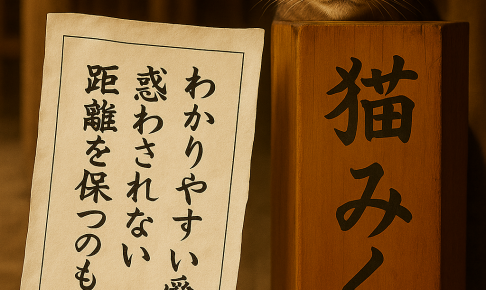 わかりやすい
惑わされない
距離を保つのも
猫みく